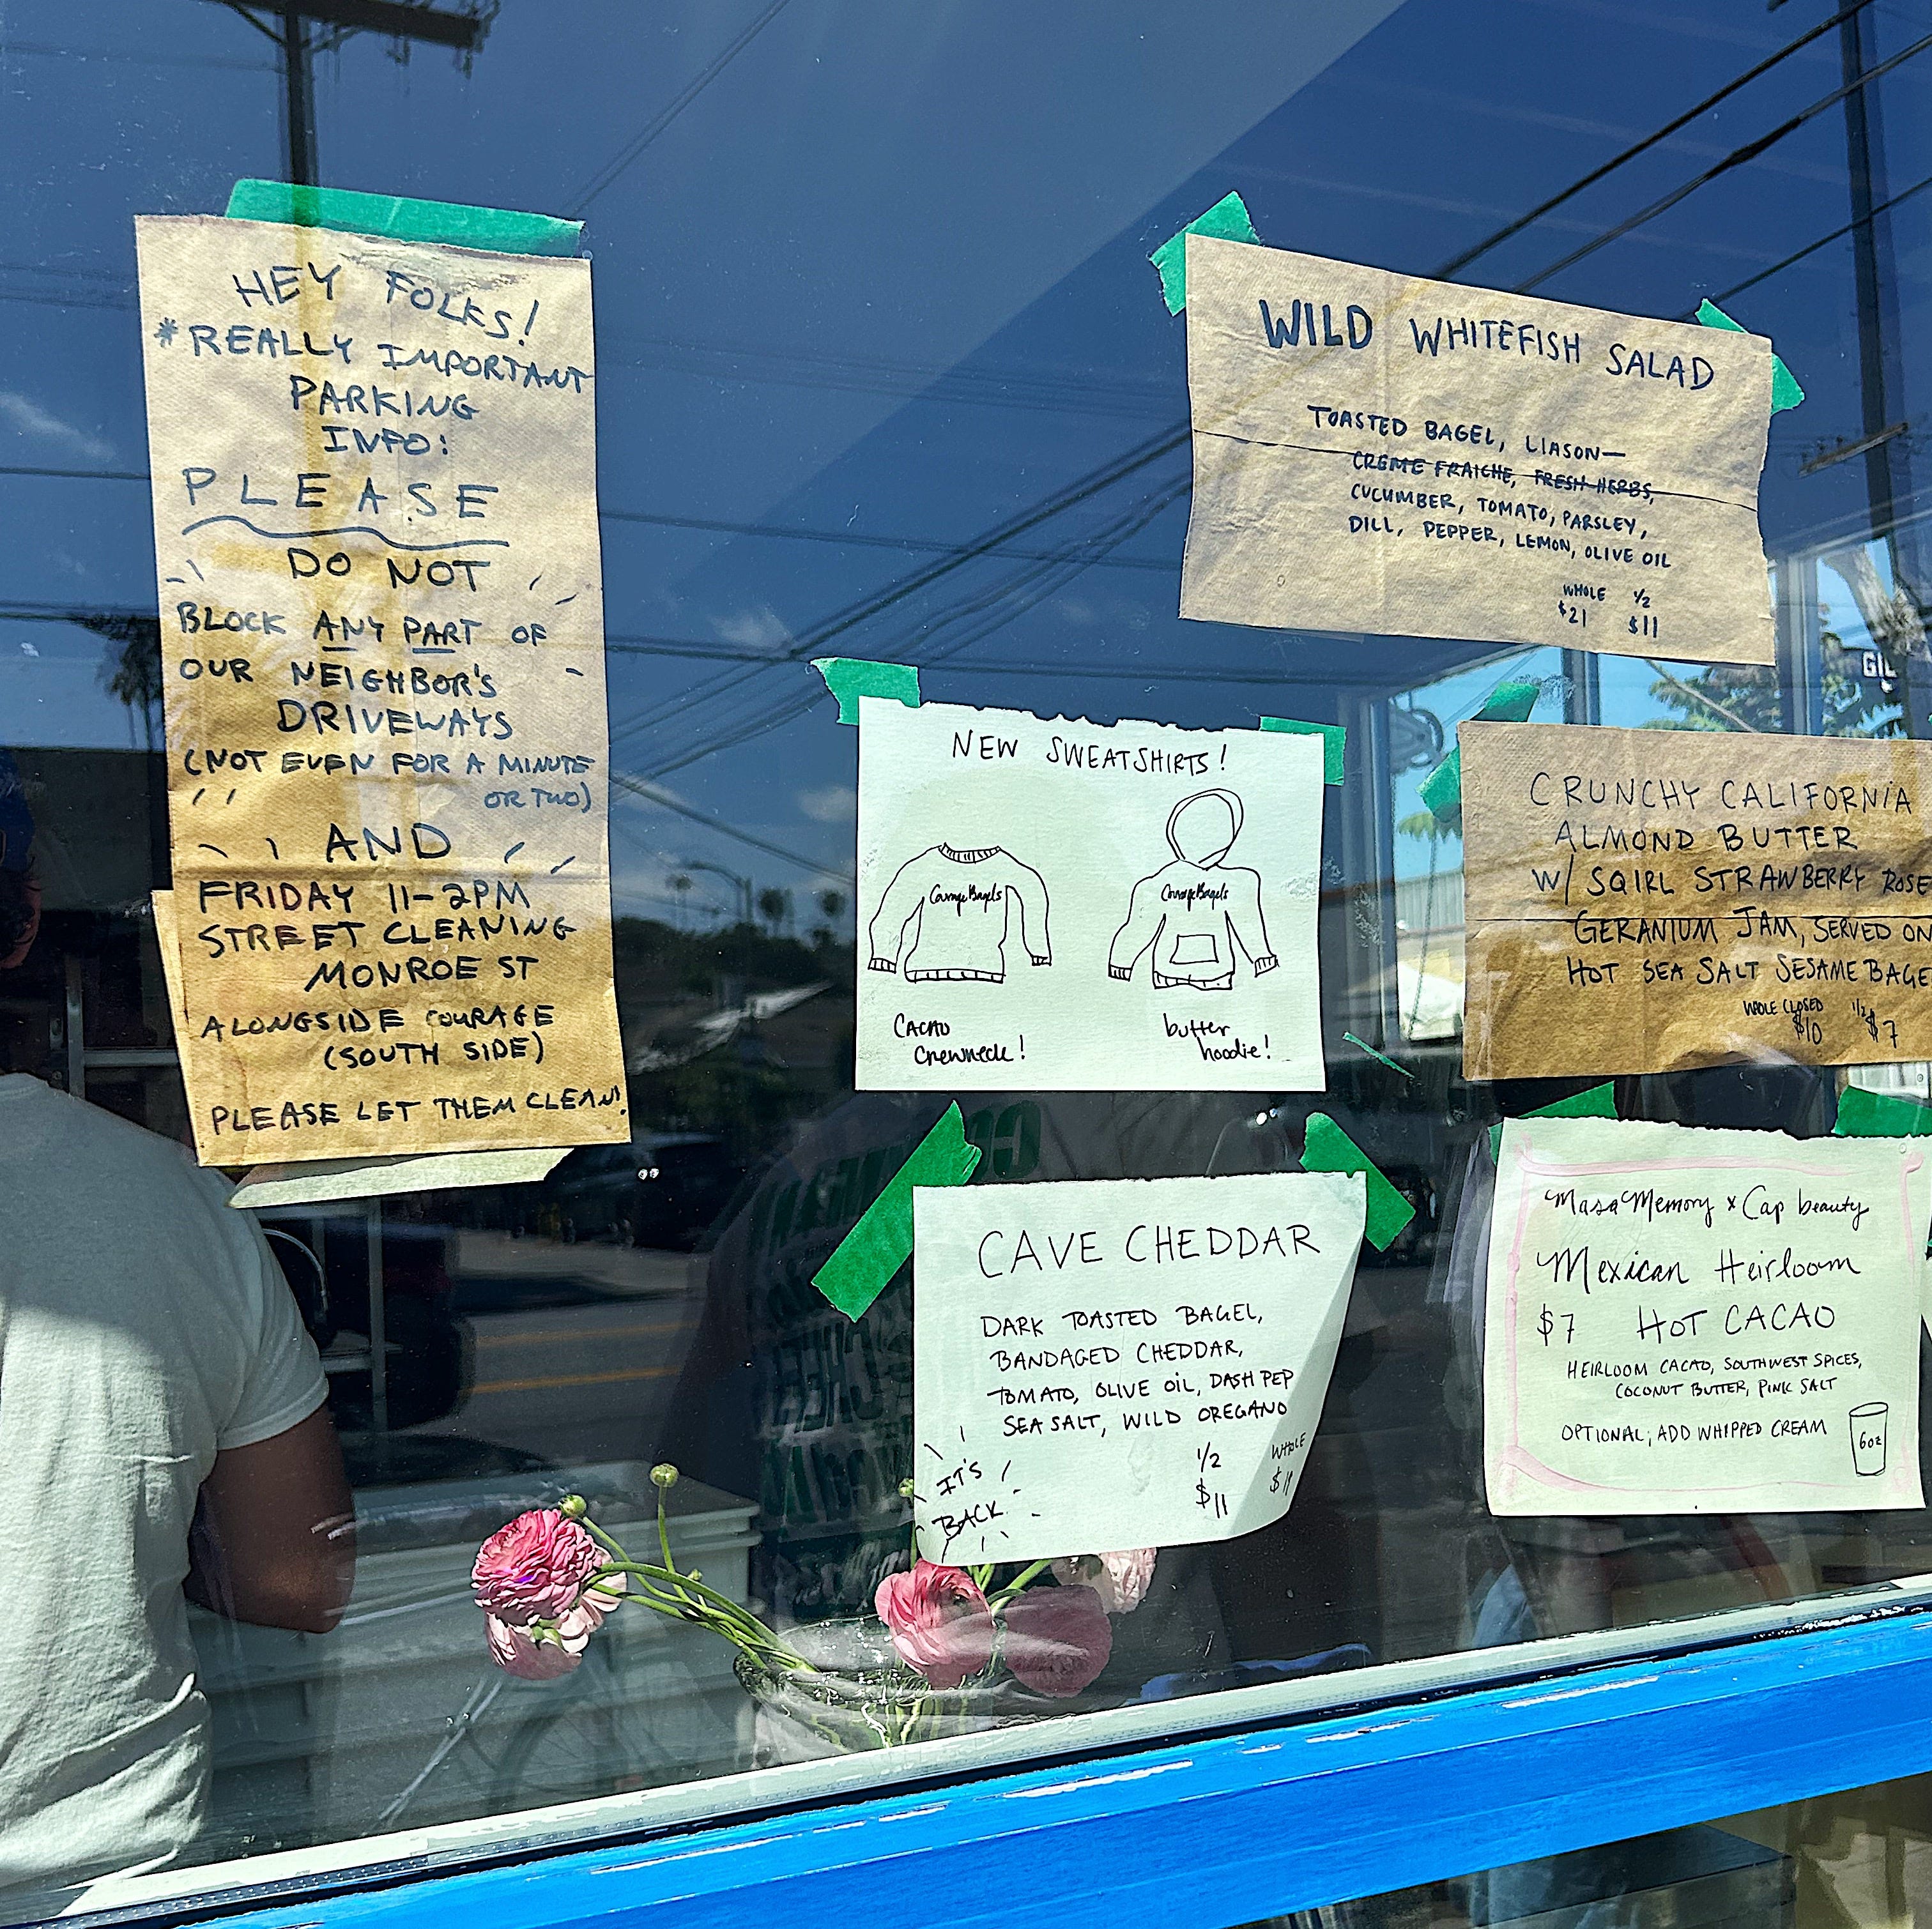 HEY FOLKS!
*REALLY IMPORTANT
PARKING
INFO:
PLEASE
DO NOT
BLOCK ANY PART OF
OUR NEIGHBOR'S
DRIVEWAYS
(NOT EVEN FOR A MINUTE
OR TWO)
AND
FRIDAY 11-2PM
STREET CLEANING
MONROE ST
ALONGSIDE COURAGE
(SOUTH SIDE)
PLEASE LET THEM CLEAN!
WILD WHITEFISH SALAD
TOASTED BAGEL, LIASON—
CREME FRAICHE, FRESH HERBS,
CUCUMBER, TOMATO, PARSLEY,
DILL, PEPPER, LEMON, OLIVE OIL
WHOLE 1/2
$21 $11
NEW SWEATSHIRTS!
Courage Bagels
Courage Bagels
CACAO
Crewneck!
butter
hoodie!
CRUNCHY CALIFORNIA
ALMOND BUTTER
W/ SQIRL STRAWBERRY ROSE
GERANIUM JAM, SERVED ON
HOT SEA SALT SESAME BAGE
WHOLE CLOSED 1/2
$10 $7
CAVE CHEDDAR
DARK TOASTED BAGEL,
BANDAGED CHEDDAR,
TOMATO, OLIVE OIL, DASH PEP
SEA SALT, WILD OREGANO
1/2 WHOLE
$11
IT'S
BACK
Masa Memory x Cap beauty
Mexican Heirloom
$7 HOT CACAO
HEIRLOOM CACAO, SOUTHWEST SPICES,
COCONUT BUTTER, PINK SALT
OPTIONAL; ADD WHIPPED CREAM
6oz